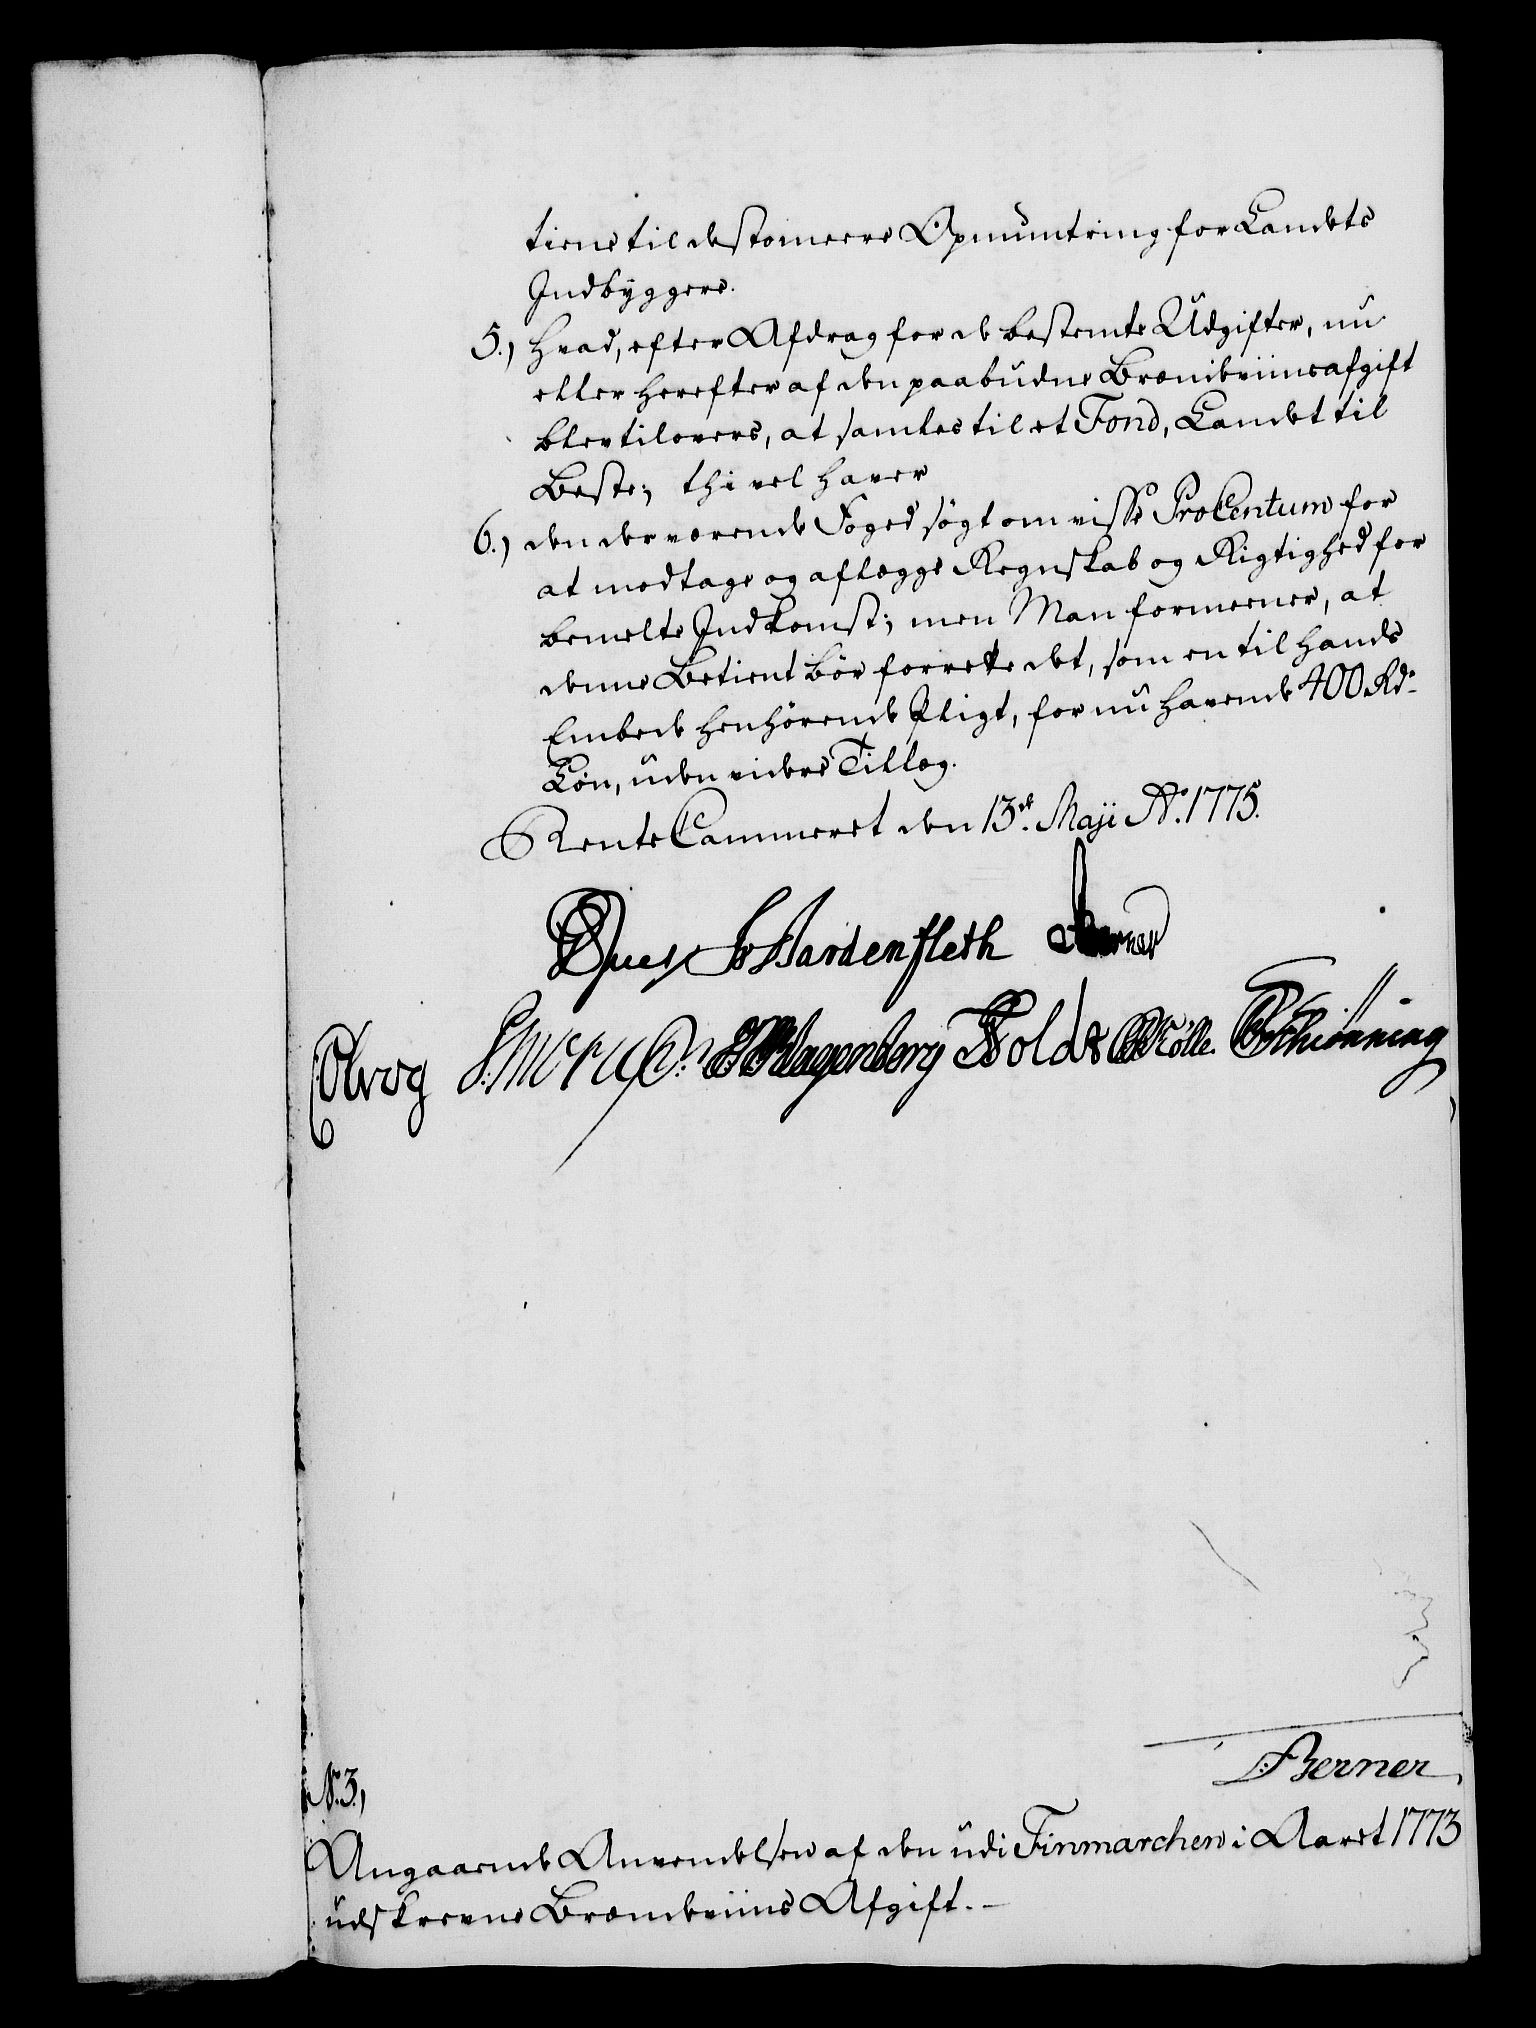 tiene til destomeere Opmuntring for Landets
Indbyggere.
5.) Hvad, efter Afdrag for de bestemte Udgifter, nu
eller herefter af den paabudne Brændeviinsafgift
blev tilovers, at samles til et Fond, Landet til
Beste; thi vel haver
6.) den derværende Foged søgt om visse ProCentum for
at modtage og aflægge Regnskab og Rigtighed for
bemelte Indkomst; men Man formeener, at
denne Betient bør forrette det, som en til hands
Embede henhörende Pligt, for nu havende 400 Rdr
Løn, uden videre Tillæg.
RenteCammeret den 13de Maji Ao. 1775.
Hardenfleth Berner
Klagenberg Holdt Rölle. Schiönning
Berner
No. 3,
Angaaende Anvendelsen af den udi Finmarchen i Aaret 1773
udskrevne Brændeviins Afgift. –